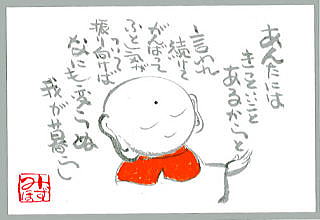 あんたには
きっといいこと
あるからと
言われ
続けて
がんばって
ふと気が
ついて
振り向けば
なにも変らぬ
我が暮らし